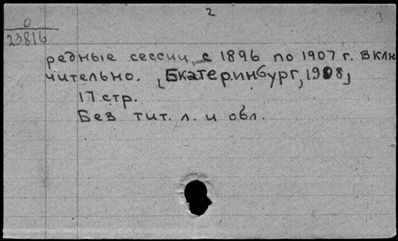 2
3
0
23816
редные сессии, с 1896 по 1907 г. вклю
чительно. [Екатеринбург, 1908]
17 стр.
Без тит. л. и обл.